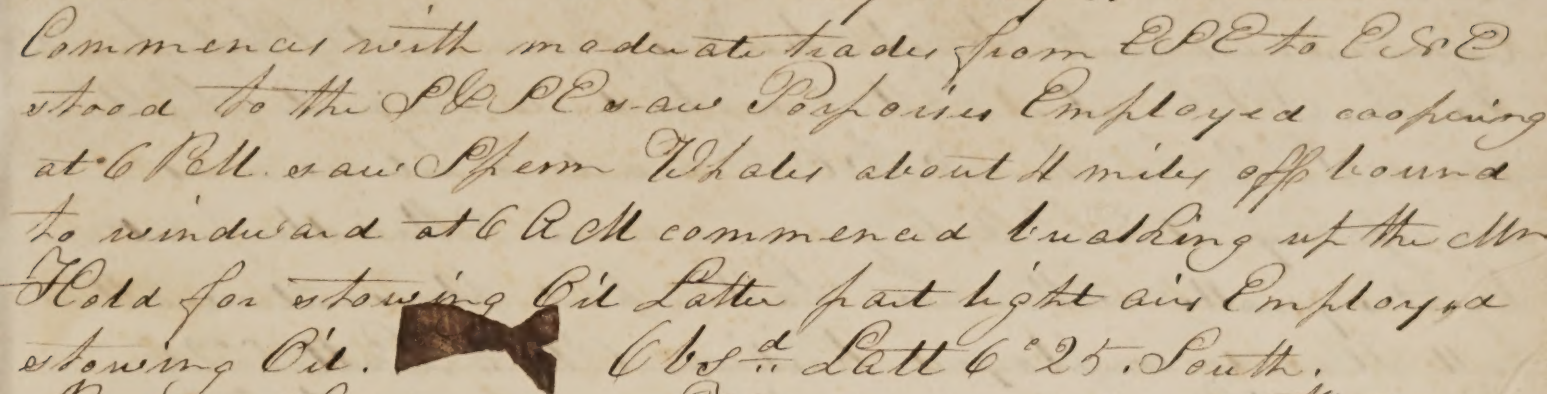 Commences with moderate trades from ESE to ENE
stood to the S & SE saw Porpoises Employed coopering
at 6 P.M. saw Sperm Whales about 4 miles off bound
to windward at 6 A M commenced breaking up the Mn
Hold for stowing Oil Latter part light airs Employed
stowing Oil. Obsd Latt 6° 25. South.